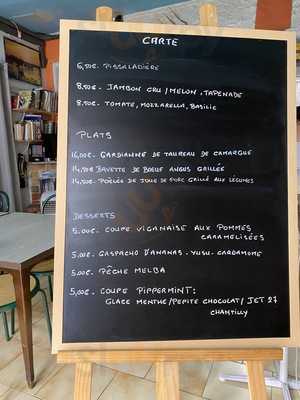 CARTE
6,50€. PISSALADIÈRE
8,50€. JAMBON CRU / MELON. TAPENADE
8,50€. TOMATE, MOZZARELLA, BASILIC
PLATS
16,00€. GARDIANNE DE TAUREAU DE CAMARGUE
14,50€ BAVETTE DE BOEUF ANGUS GRILLÉE
14,50€. POÊLÉE DE JOUE DE PORC GRILLÉ AUX LÉGUMES
DESSERTS
5.00€. COUPE VIGANAISE AUX POMMES
CARAMELISÉES
5,00€. GASPACHO D'ANANAS. YUSU. CARDAMOME
5,00€. PÊCHE MELBA
5,00€. COUPE PIPPERMINT:
GLACE MENTHE/PEPITE CHOCOLAT/ JET 27
CHANTILLY